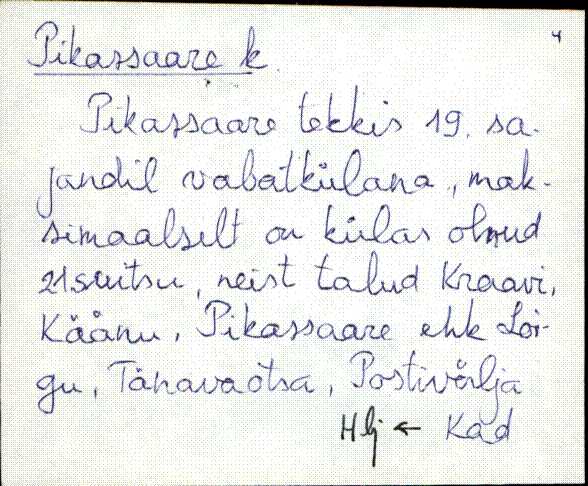 4
Pikassaare k.
Pikassaare tekkis 19. sa-
jandil vabatkülana, mak-
simaalselt on külas olnud
21 suitsu, neist talud Kraavi,
Käänu, Pikassaare ehk Loi-
gu, Tänavaotsa, Postivälja
Hlj ← Kad